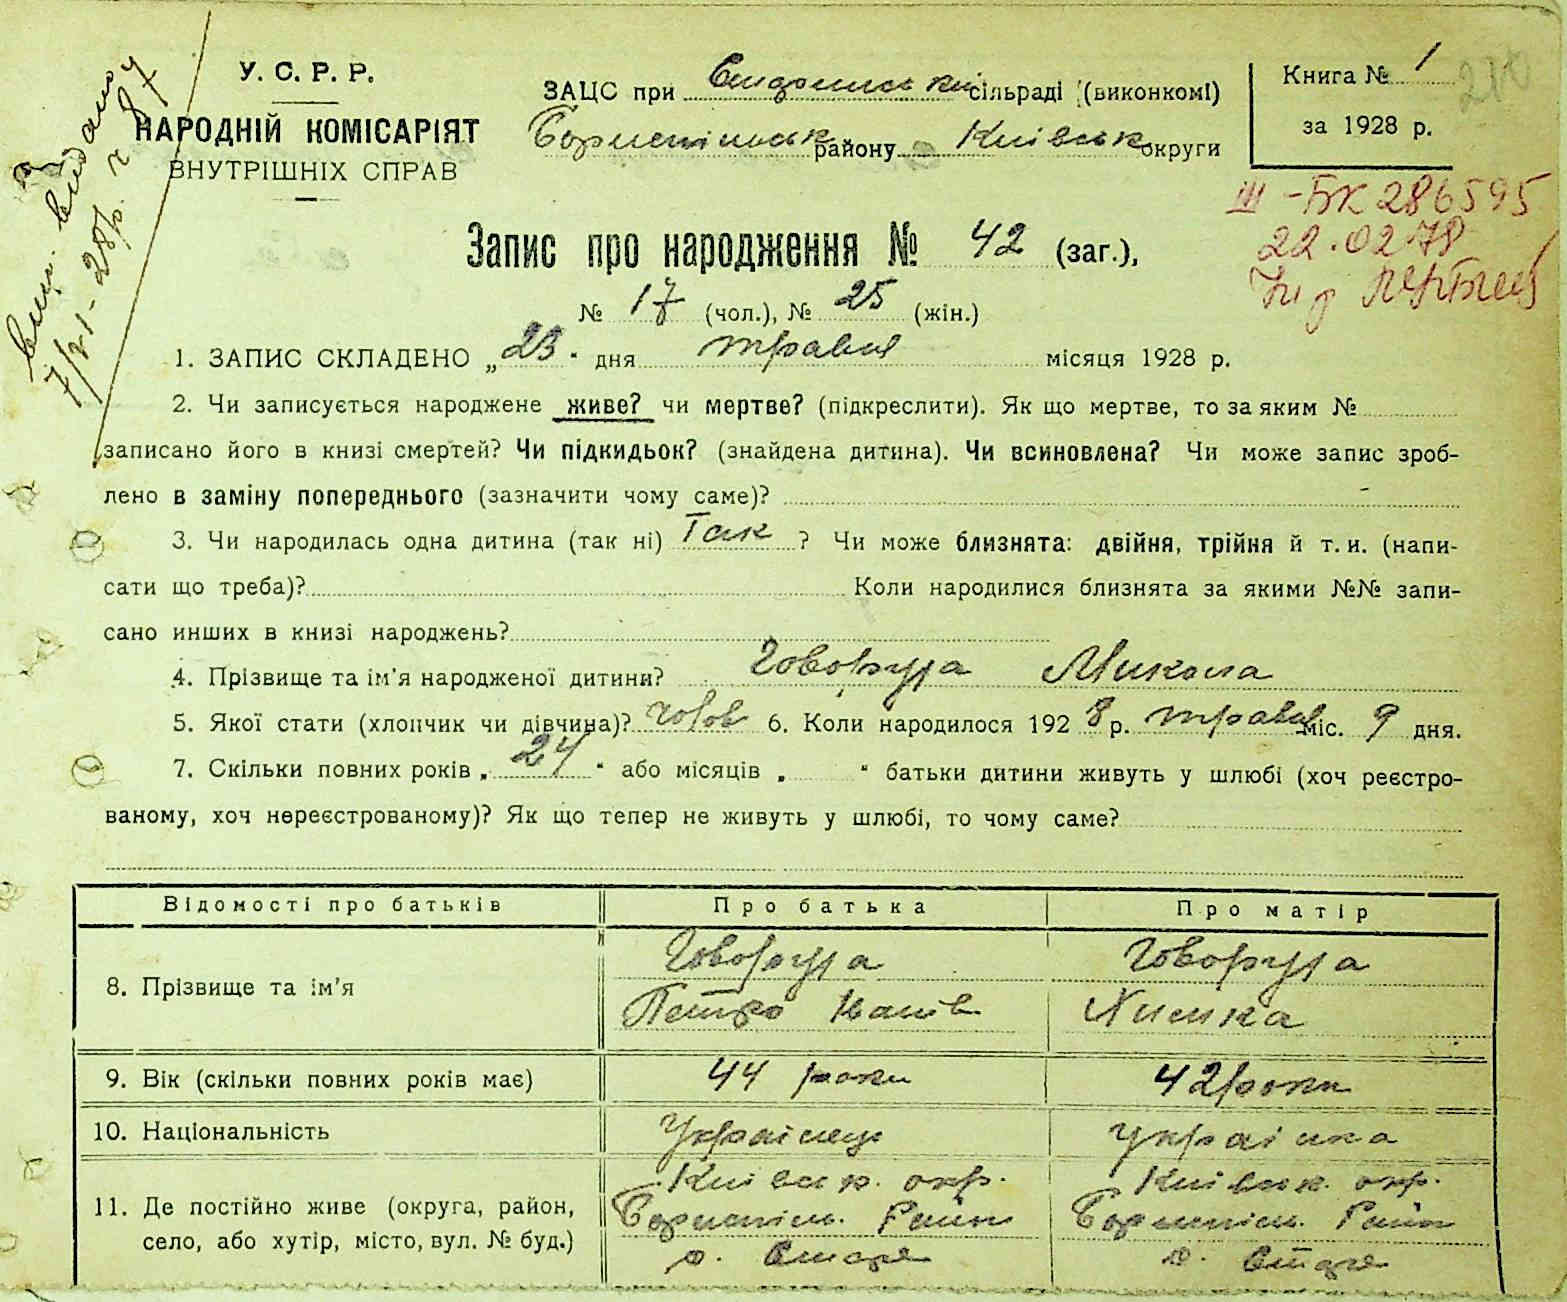 У. С. Р. Р.
НАРОДНІЙ КОМІСАРІЯТ
ВНУТРІШНІХ СПРАВ
ЗАЦС при сільраді (виконкомі)
Бориспільськ району Київськ округи
Книга № 1
за 1928 р.
210
III-БК 286595
22.02.78
Запис про народження № 42 (заг.),
№ 17 (чол.), № 25 (жін.)
1. ЗАПИС СКЛАДЕНО „ 23 " дня травня місяця 1928 р.
2. Чи записується народжене живе? чи мертве? (підкреслити). Як що мертве, то за яким №
записано його в книзі смертей? Чи підкидьок? (знайдена дитина). Чи всиновлена? Чи може запис зроб-
лено в заміну попереднього (зазначити чому саме)? -
3. Чи народилась одна дитина (так ні) Так ? Чи може близнята: двійня, трійня й т. и. (напи-
сати що треба)? Коли народилися близнята за якими №№ запи-
сано инших в книзі народжень?
4. Прізвище та ім'я народженої дитини? Говоруха Микола
5. Якої стати (хлопчик чи дівчина)? чолов 6. Коли народилося 192 8 р. травня міс. 9 дня.
7. Скільки повних років „ 24 " або місяців „ " батьки дитини живуть у шлюбі (хоч реєстро-
ваному, хоч нереєстрованому)? Як що тепер не живуть у шлюбі, то чому саме?
Відомості про батьків Про батька Про матір
8. Прізвище та ім'я Говоруха Говоруха
Петро Іванів Химка
9. Вік (скільки повних років має) 44 роки 42 роки
10. Національність Українець українка
11. Де постійно живе (округа, район, Київськ. окр. Київськ. окр.
село, або хутір, місто, вул. № буд.) Бориспіль. Район Бориспіль. Район
с. Старе с. Старе